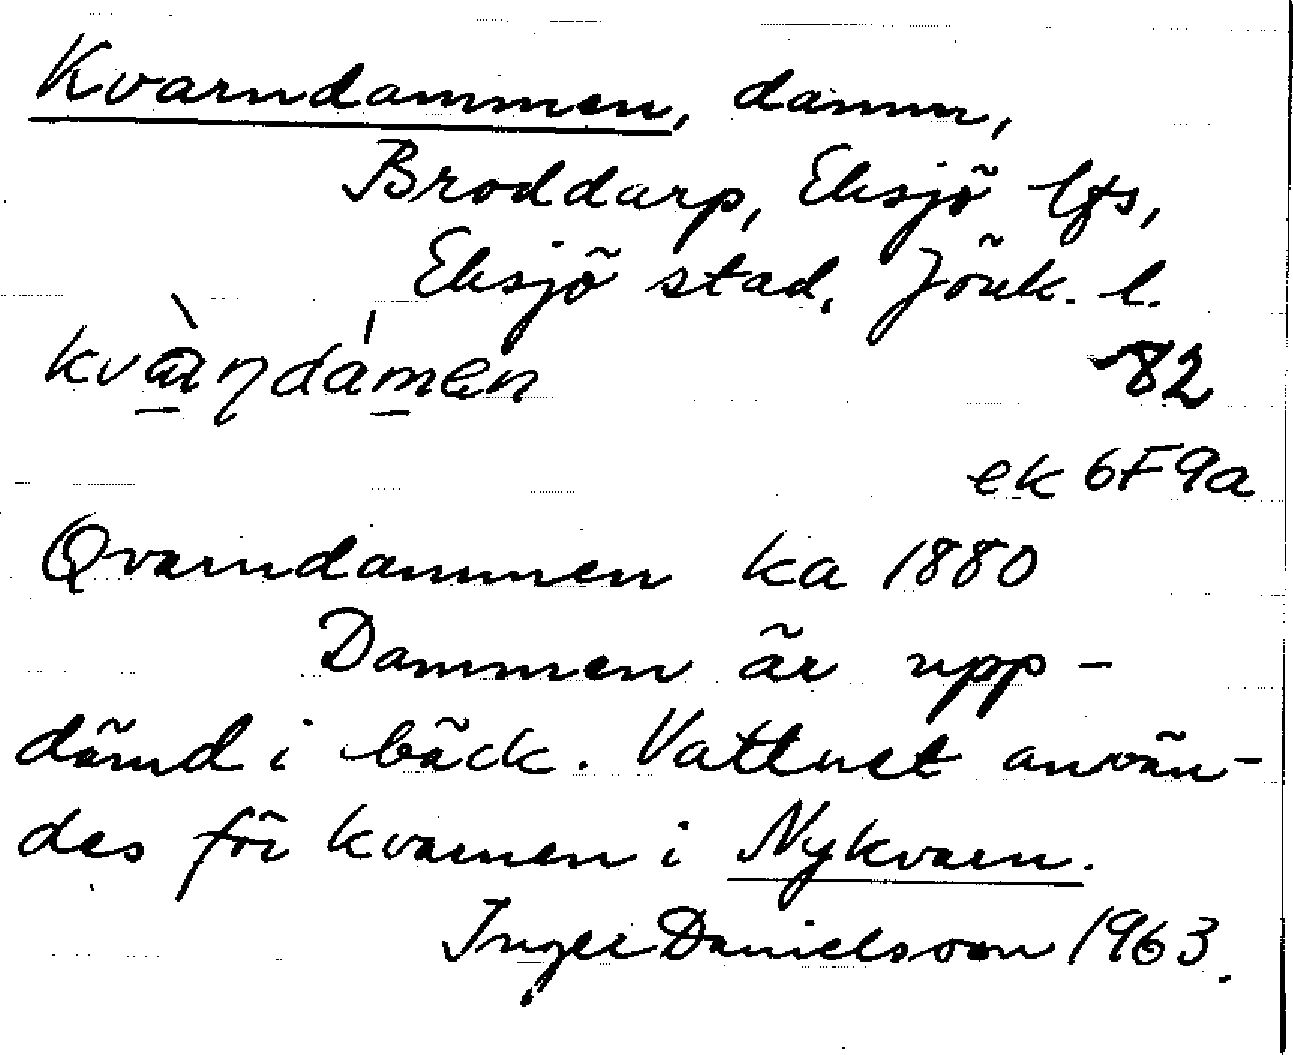 Kvarndammen, damm,
Broddarp, Eksjö lfs,
Eksjö stad, Jönk. l.
kvàṇdámen 82
ek 6F9a
Qvarndammen ka 1880
Dammen är upp-
dämd i bäck. Vattnet använ-
des för kvarnen i Nykvarn.
Inger Danielsson 1963.